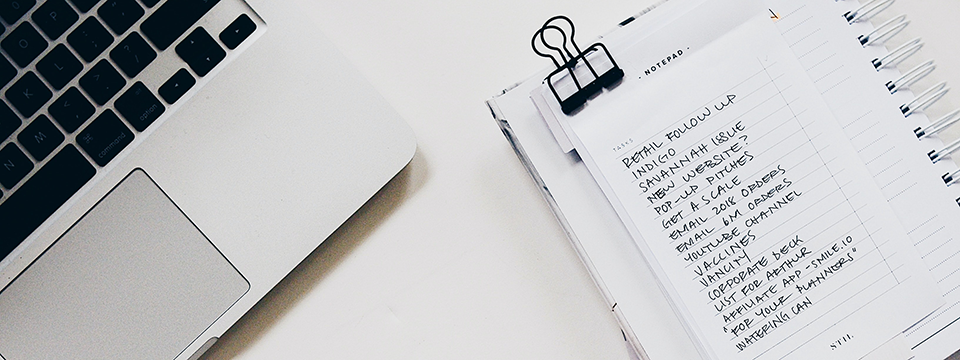 O
P
K
L
M
N
command
option
- NOTEPAD -
TASKS
RETAIL FOLLOW UP
INDIGO
SAVANNAH ISSUE
NEW WEBSITE?
POP-UP PITCHES
GET A SCALE
EMAIL 2018 ORDERS
EMAIL 6M ORDERS
YOUTUBE CHANNEL
VACCINES
VANCITY
CORPORATE DECK
LIST FOR ARTHUR
AFFILIATE APP - SMILE.IO
"FOR YOUR PLANNERS"
WATERING CAN
STIL